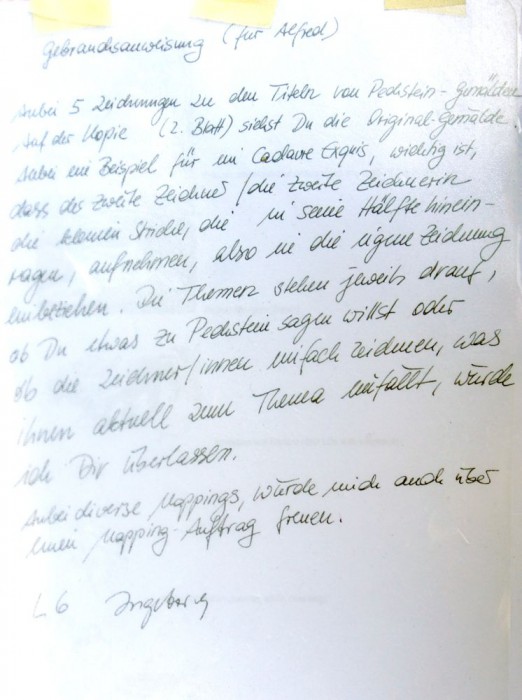 Gebrauchsanweisung (für Alfred)
Anbei 5 Zeichnungen zu den Titeln von Pechstein-Gemälden
Auf der Kopie (2. Blatt) siehst Du die Original-Gemälde
Anbei ein Beispiel für ein Cadavre Exquis, wichtig ist,
dass der zweite Zeichner / die zweite Zeichnerin
die kleinen Striche, die in seine Hälfte hinein-
ragen, aufnehmen, also in die eigene Zeichnung
einbeziehen. Die Themen stehen jeweils drauf,
ob Du etwas zu Pechstein sagen willst oder
ob die Zeichner/innen einfach zeichnen, was
ihnen aktuell zum Thema einfällt, würde
ich Dir überlassen.
Anbei diverse Mappings, würde mich auch über
einen Mapping-Auftrag freuen.
LG Ingeborg